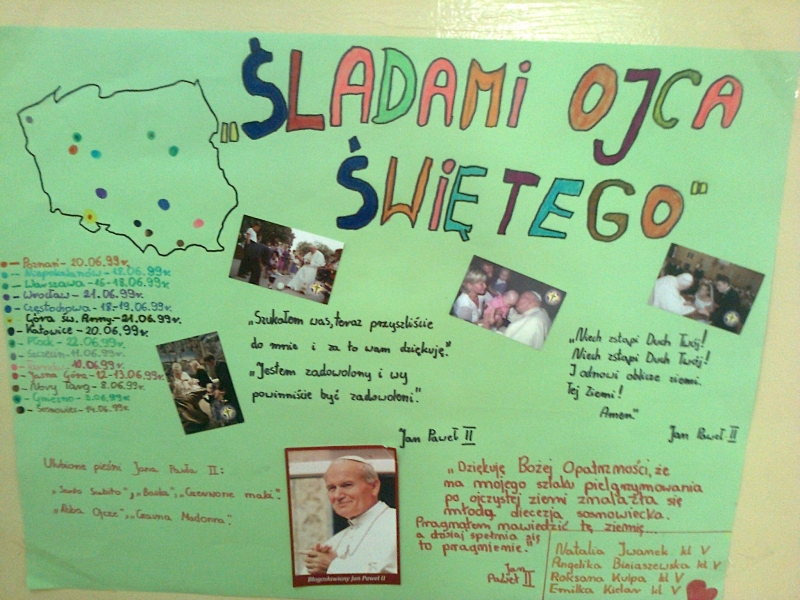 „ŚLADAMI OJCA
ŚWIĘTEGO"
- Poznań - 20.06.99r.
- Niepokalanów - 18.06.99r.
- Warszawa - 16-18.06.99r.
- Wrocław - 21.06.99r.
- Częstochowa - 18-19.06.99r.
- Góra św. Anny - 21.06.99r.
- Katowice - 20.06.99r.
- Płock - 22.06.99r.
- Szczecin - 11.06.99r.
- 10.06.99r.
- Jasna Góra - 12-13.06.99r.
- Nowy Targ - 8.06.99r.
- Gniezno - 3.06.99r.
- Sosnowiec - 14.06.99r.
„Szukałem was, teraz przyszliście
do mnie i za to wam dziękuję."
„Jestem zadowolony i wy
powinniście być zadowoleni."
Jan Paweł II
„Niech zstąpi Duch Twój!
Niech zstąpi Duch Twój!
I odnowi oblicze ziemi.
Tej Ziemi!
Amen"
Jan Paweł II
Ulubione pieśni Jana Pawła II:
„Santo Subito", „Barka", „Czerwone maki",
„Abba Ojcze", „Czarna Madonna".
Błogosławiony Jan Paweł II
„Dziękuję Bożej Opatrzności, że
na mojego szlaku pielgrzymowania
po ojczystej ziemi znalazła się
młoda diecezja sosnowiecka.
Pragnąłem nawiedzić tę ziemię...
a dzisiaj spełnia się
to pragnienie."
Jan
Paweł II
Natalia Iwanek kl V
Angelika Biniaszewska kl V
Roksana Kulpa kl V
Emilka Kielar kl V